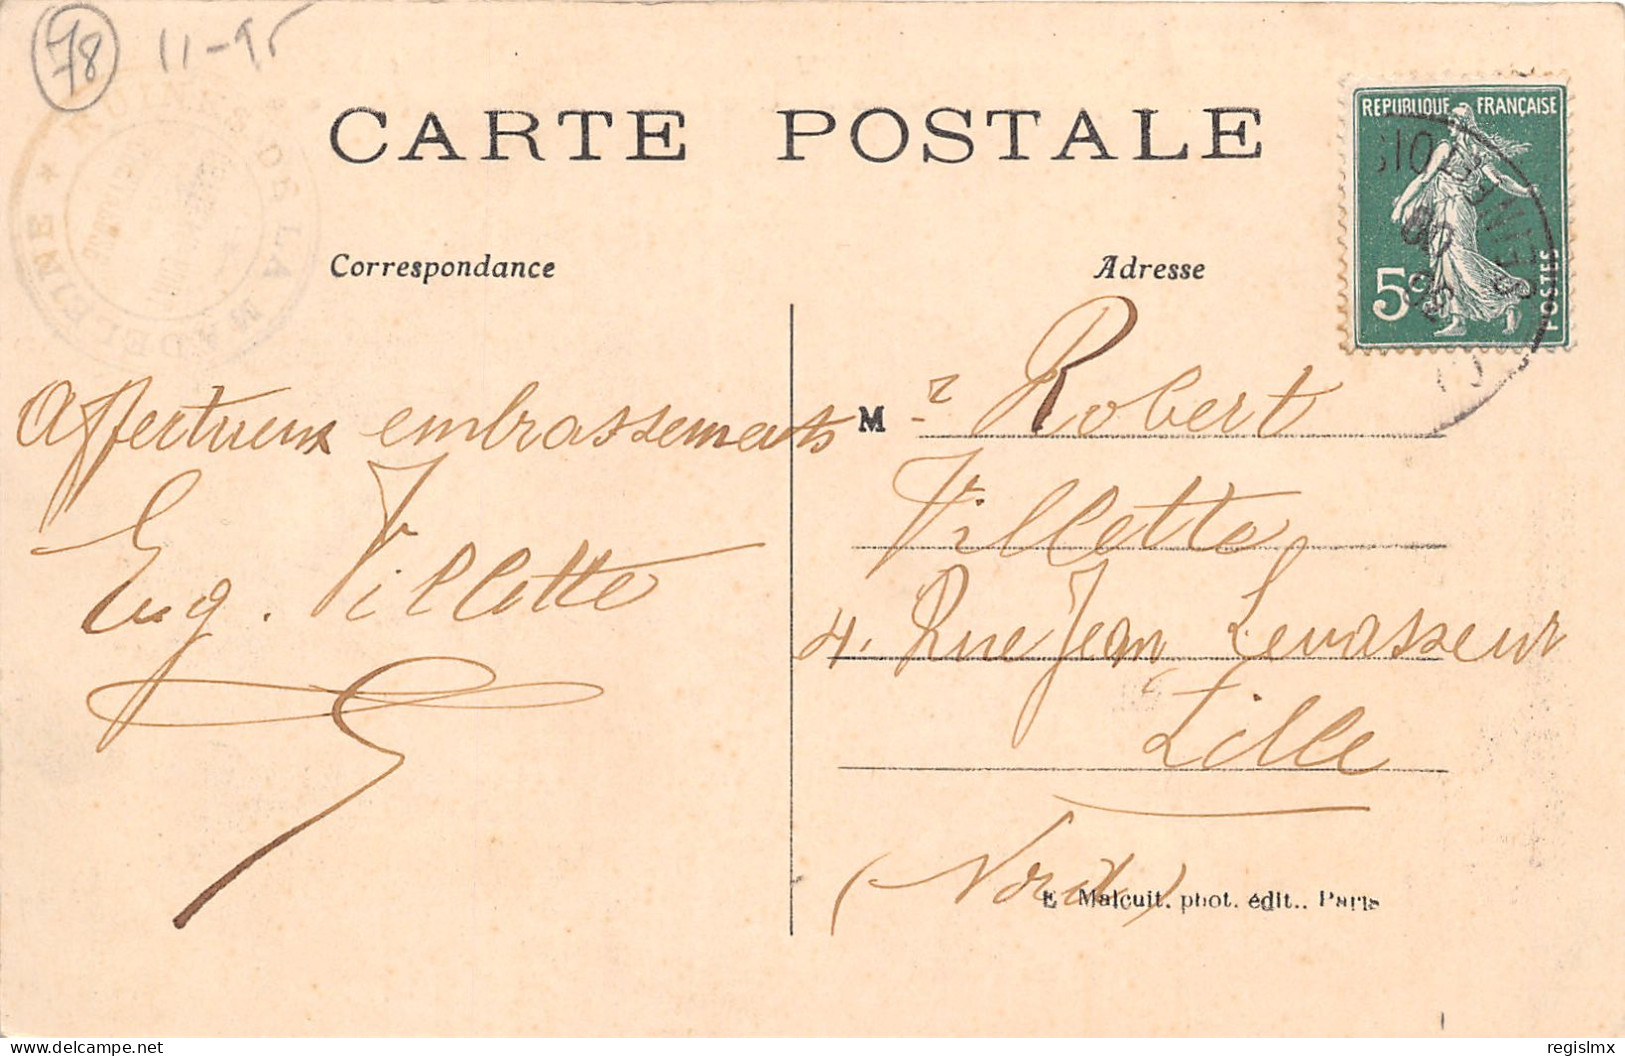 78 11-95
RUINES DE LA MADELEINE
CARTE POSTALE
REPUBLIQUE FRANÇAISE
5c
POSTES
Correspondance
Adresse
Affectueux embrassements
Eug. Villette
M r Robert
Villette
4, Rue Jean Levasseur
Lille
(Nord)
E Malcuit. phot. édit.. Paris
regislmx